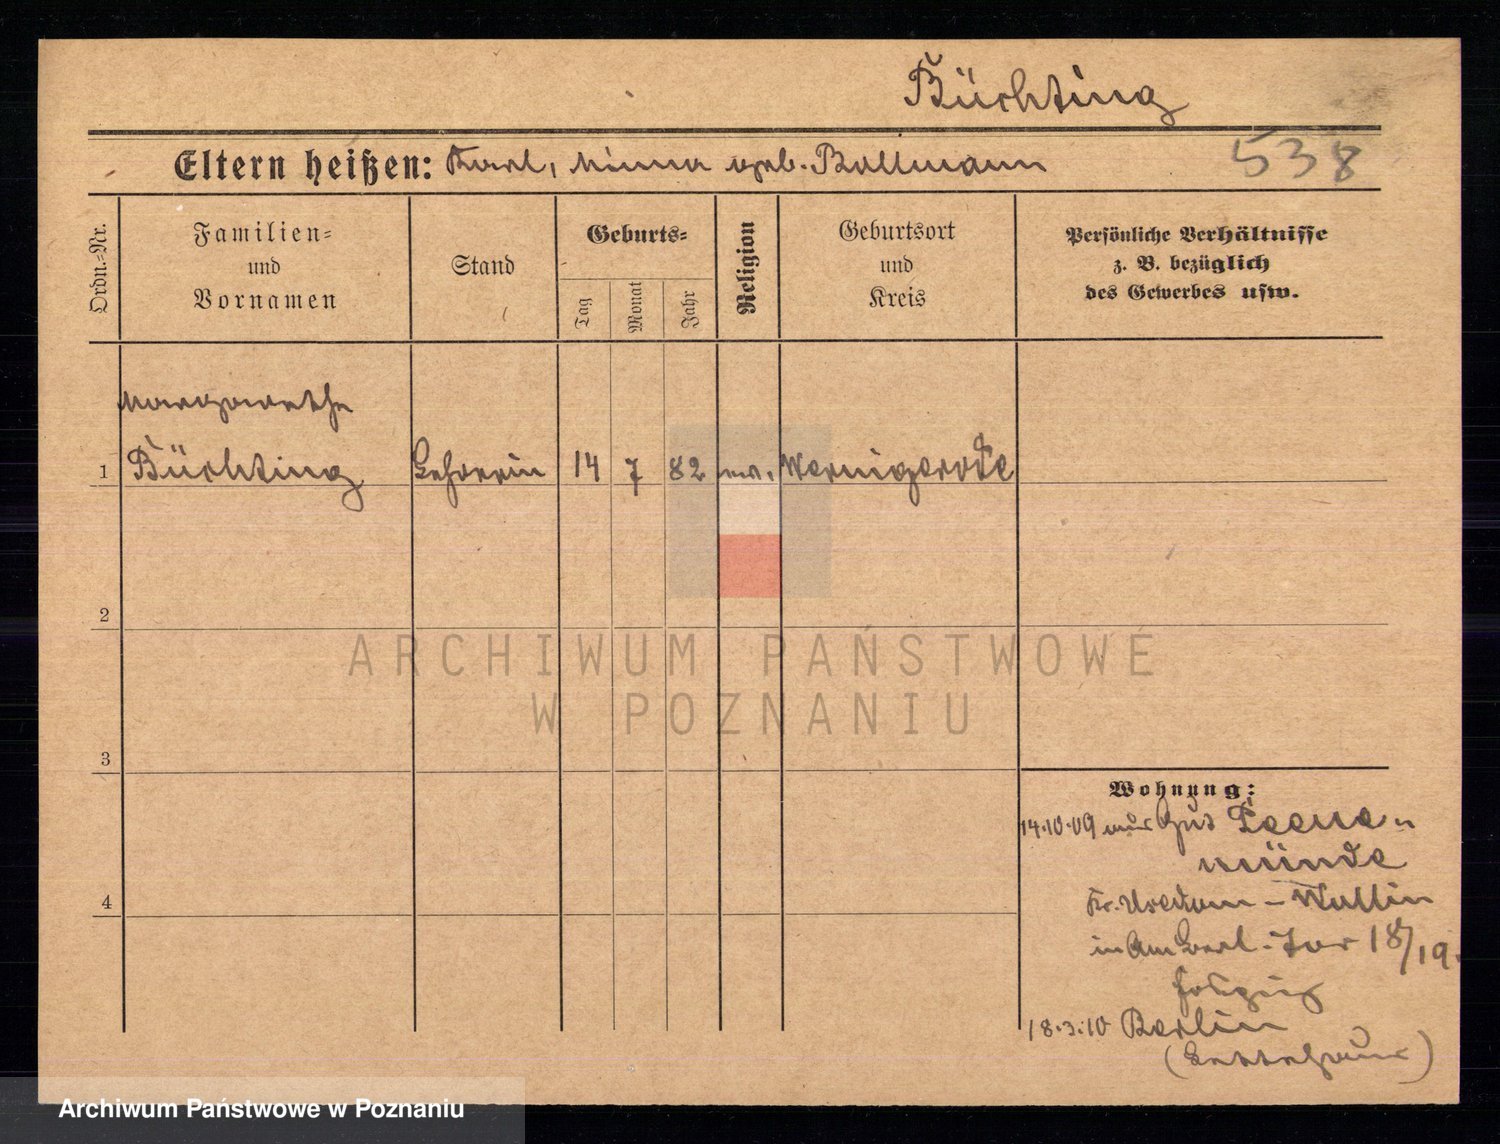 Büchting
538
Eltern heißen: Karl, Minna geb. Bollmann
Ordn.-Nr.
Familien-
und
Vornamen
Stand
Geburts-
Tag
Monat
Jahr
Religion
Geburtsort
und
Kreis
Persönliche Verhältnisse
z. B. bezüglich
des Gewerbes usw.
Margarethe
1 Büchting Lehrerin 14 7 82 ev. Wernigerode
2
3
4
ARCHIWUM PAŃSTWOWE
W POZNANIU
Wohnung:
14.10.09 Gut Peene-
münde
Kr. Usedom-Wollin
in Am Berl. Tor 18/19.
18.3.10 Berlin
(Lettehaus)
Archiwum Państwowe w Poznaniu